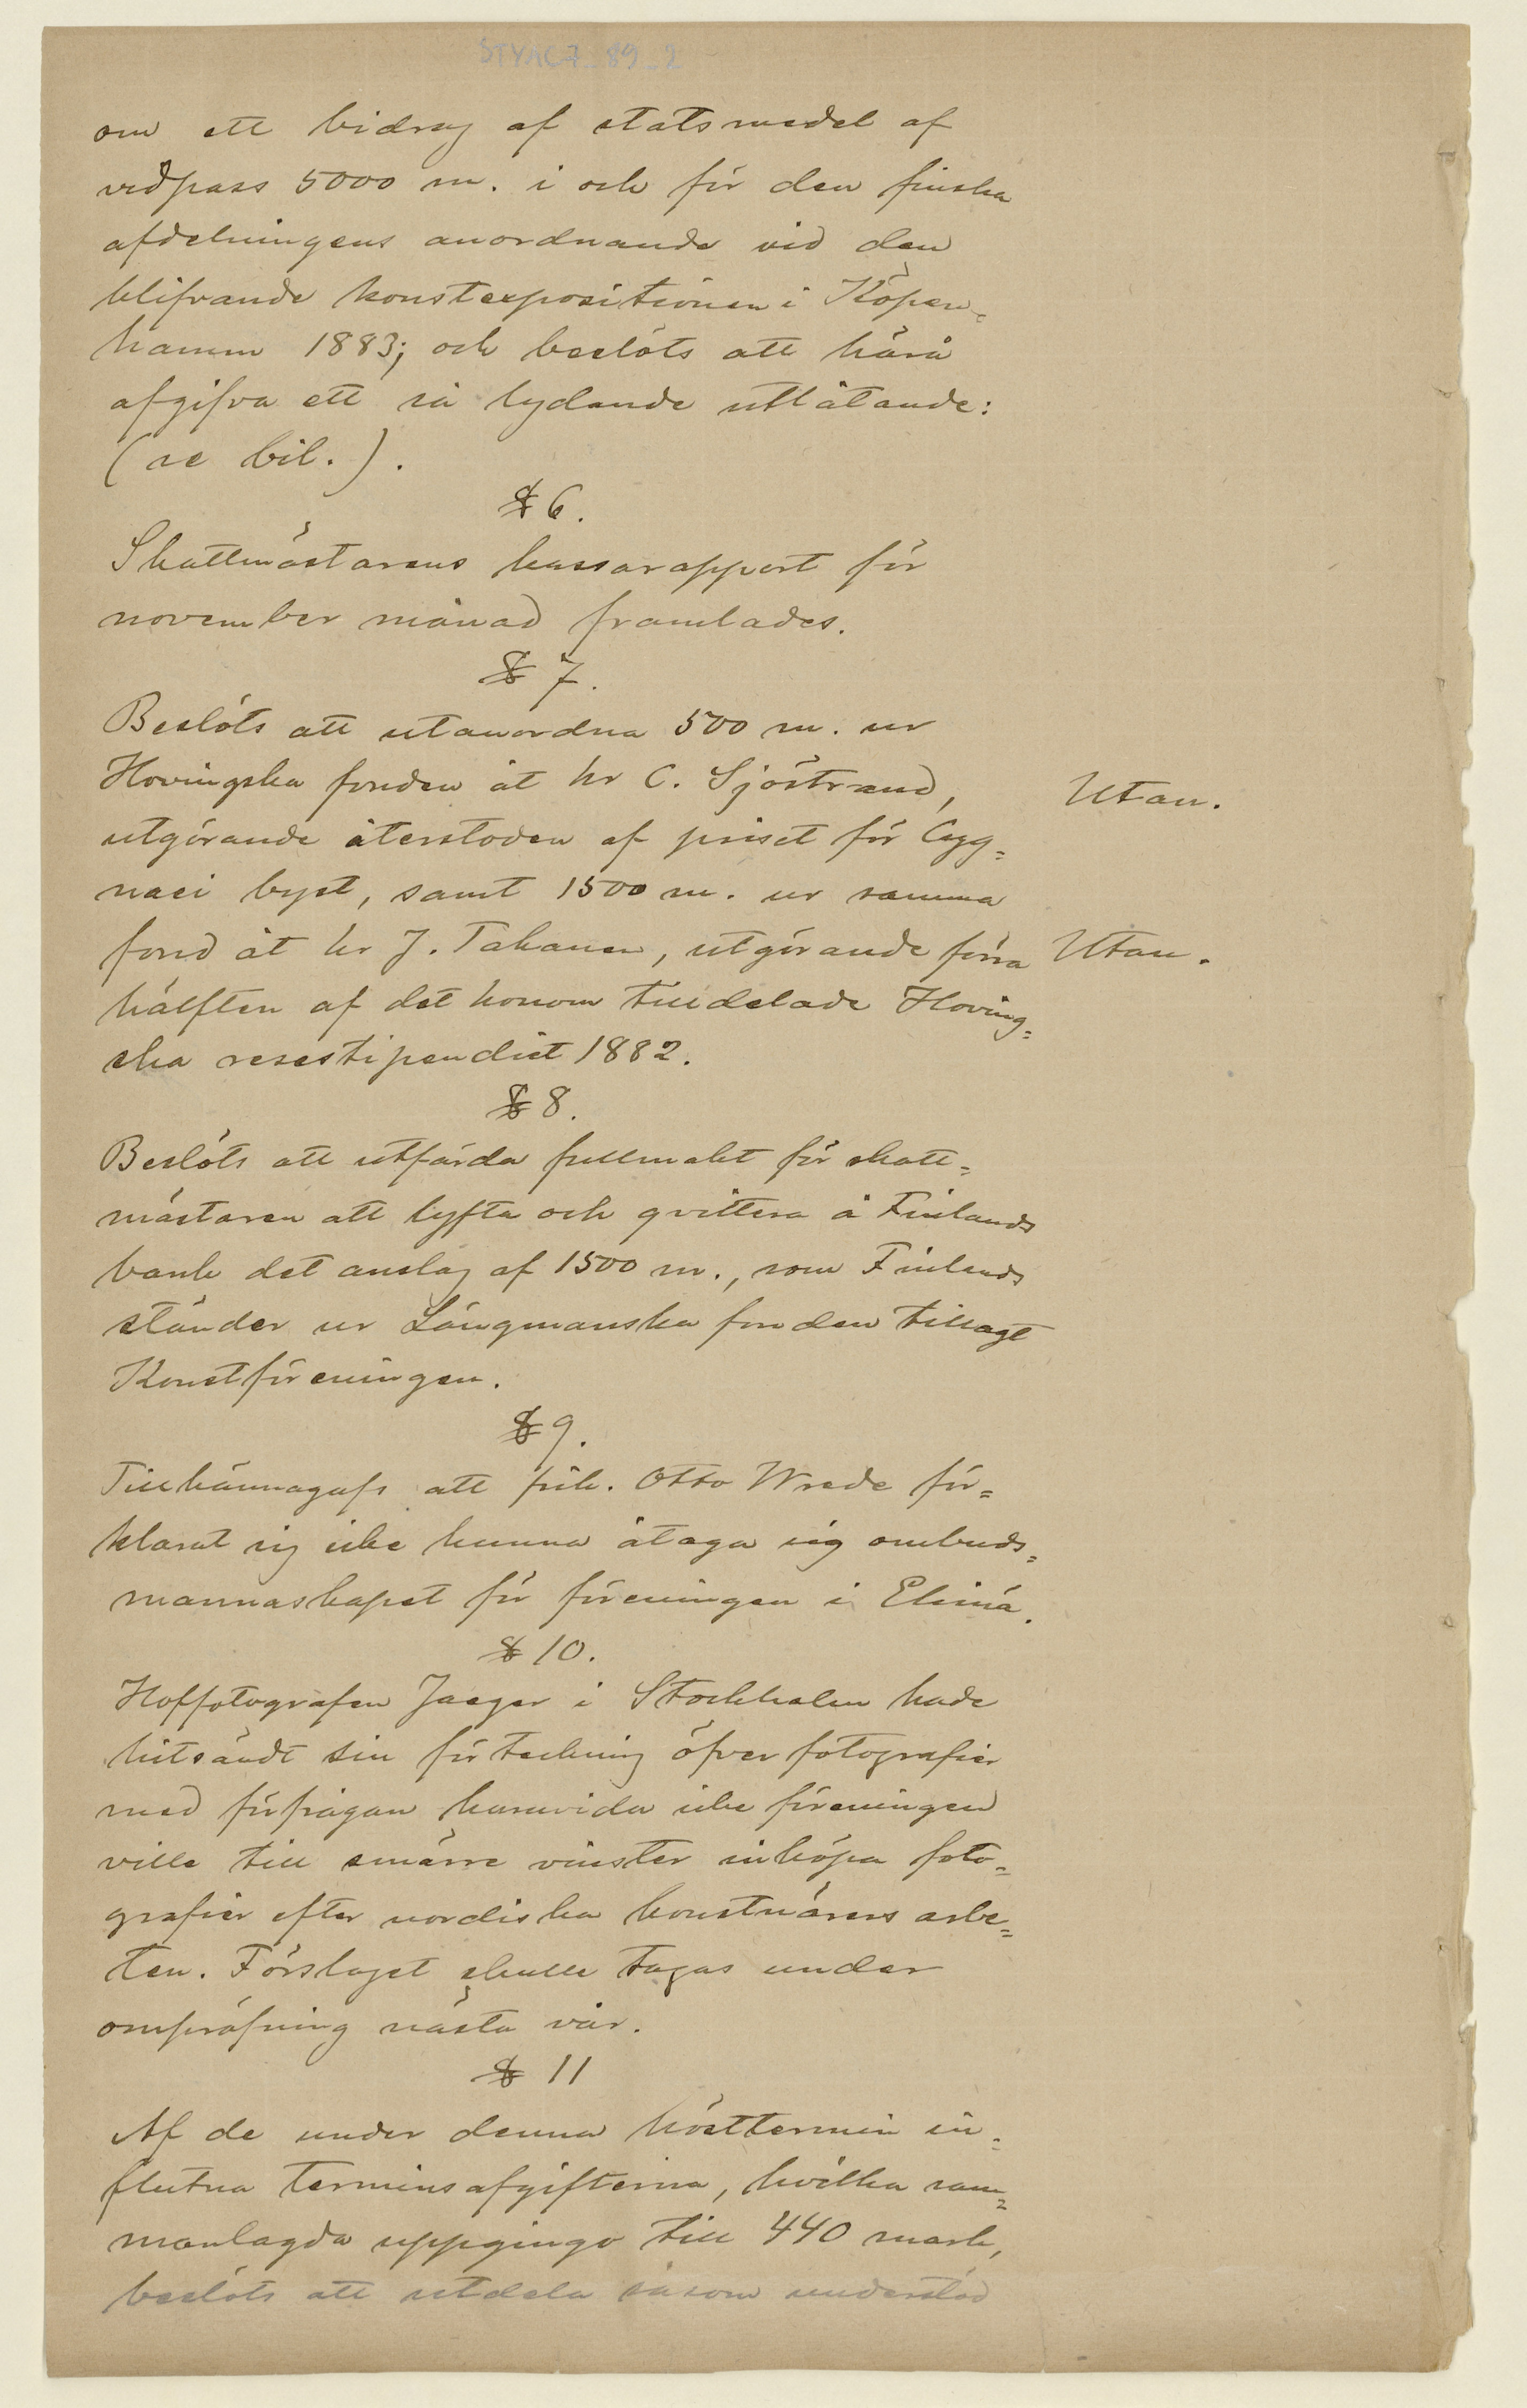 STYAC7_89_2
om ett bidrag af statsmedel af
vidpass 5000 m. i och för den finska
afdelningens anordnande vid den
blifvande konstexpositionen i Köpen=
hamn 1883; och beslöts att härå
afgifva ett så lydande utlåtande:
(se bil.).
§ 6.
Skattmästarens kassarapport för
november månad framlades.
§ 7.
Beslöts att utanordna 500 m. ur
Hovingska fonden åt hr C. Sjöstrand,
Utan.
utgörande återstoden af priset för Cyg=
naei byst, samt 1500 m. ur samma
fond åt hr J. Takanen, utgörande förra
Utan.
hälften af det honom tilldelade Hoving=
ska resestipendiet 1882.
§ 8.
Beslöts att utfärda fullmakt för skatt=
mästaren att lyfta och qvittera å Finlands
bank det anslag af 1500 m., som Finlands
ständer ur Längmanska fonden tillagt
Konstföreningen.
§ 9.
Tillkännagafs att frih. Otto Wrede för=
klarat sig icke kunna åtaga sig ombuds=
mannaskapet för föreningen i Elimä.
§ 10.
Hoffotografen Jaeger i Stockholm hade
hitsändt sin förteckning öfver fotografier
med förfrågan huruvida icke föreningen
ville till smärre vinster inköpa foto=
grafier efter nordiska konstnärers arbe=
ten. Förslaget skulle tagas under
ompröfning nästa vår.
§ 11
Af de under denna hösttermin in=
flutna terminsafgifterna, hvilka sam=
manlagda uppgingo till 440 mark,
beslöts att utdela såsom understöd